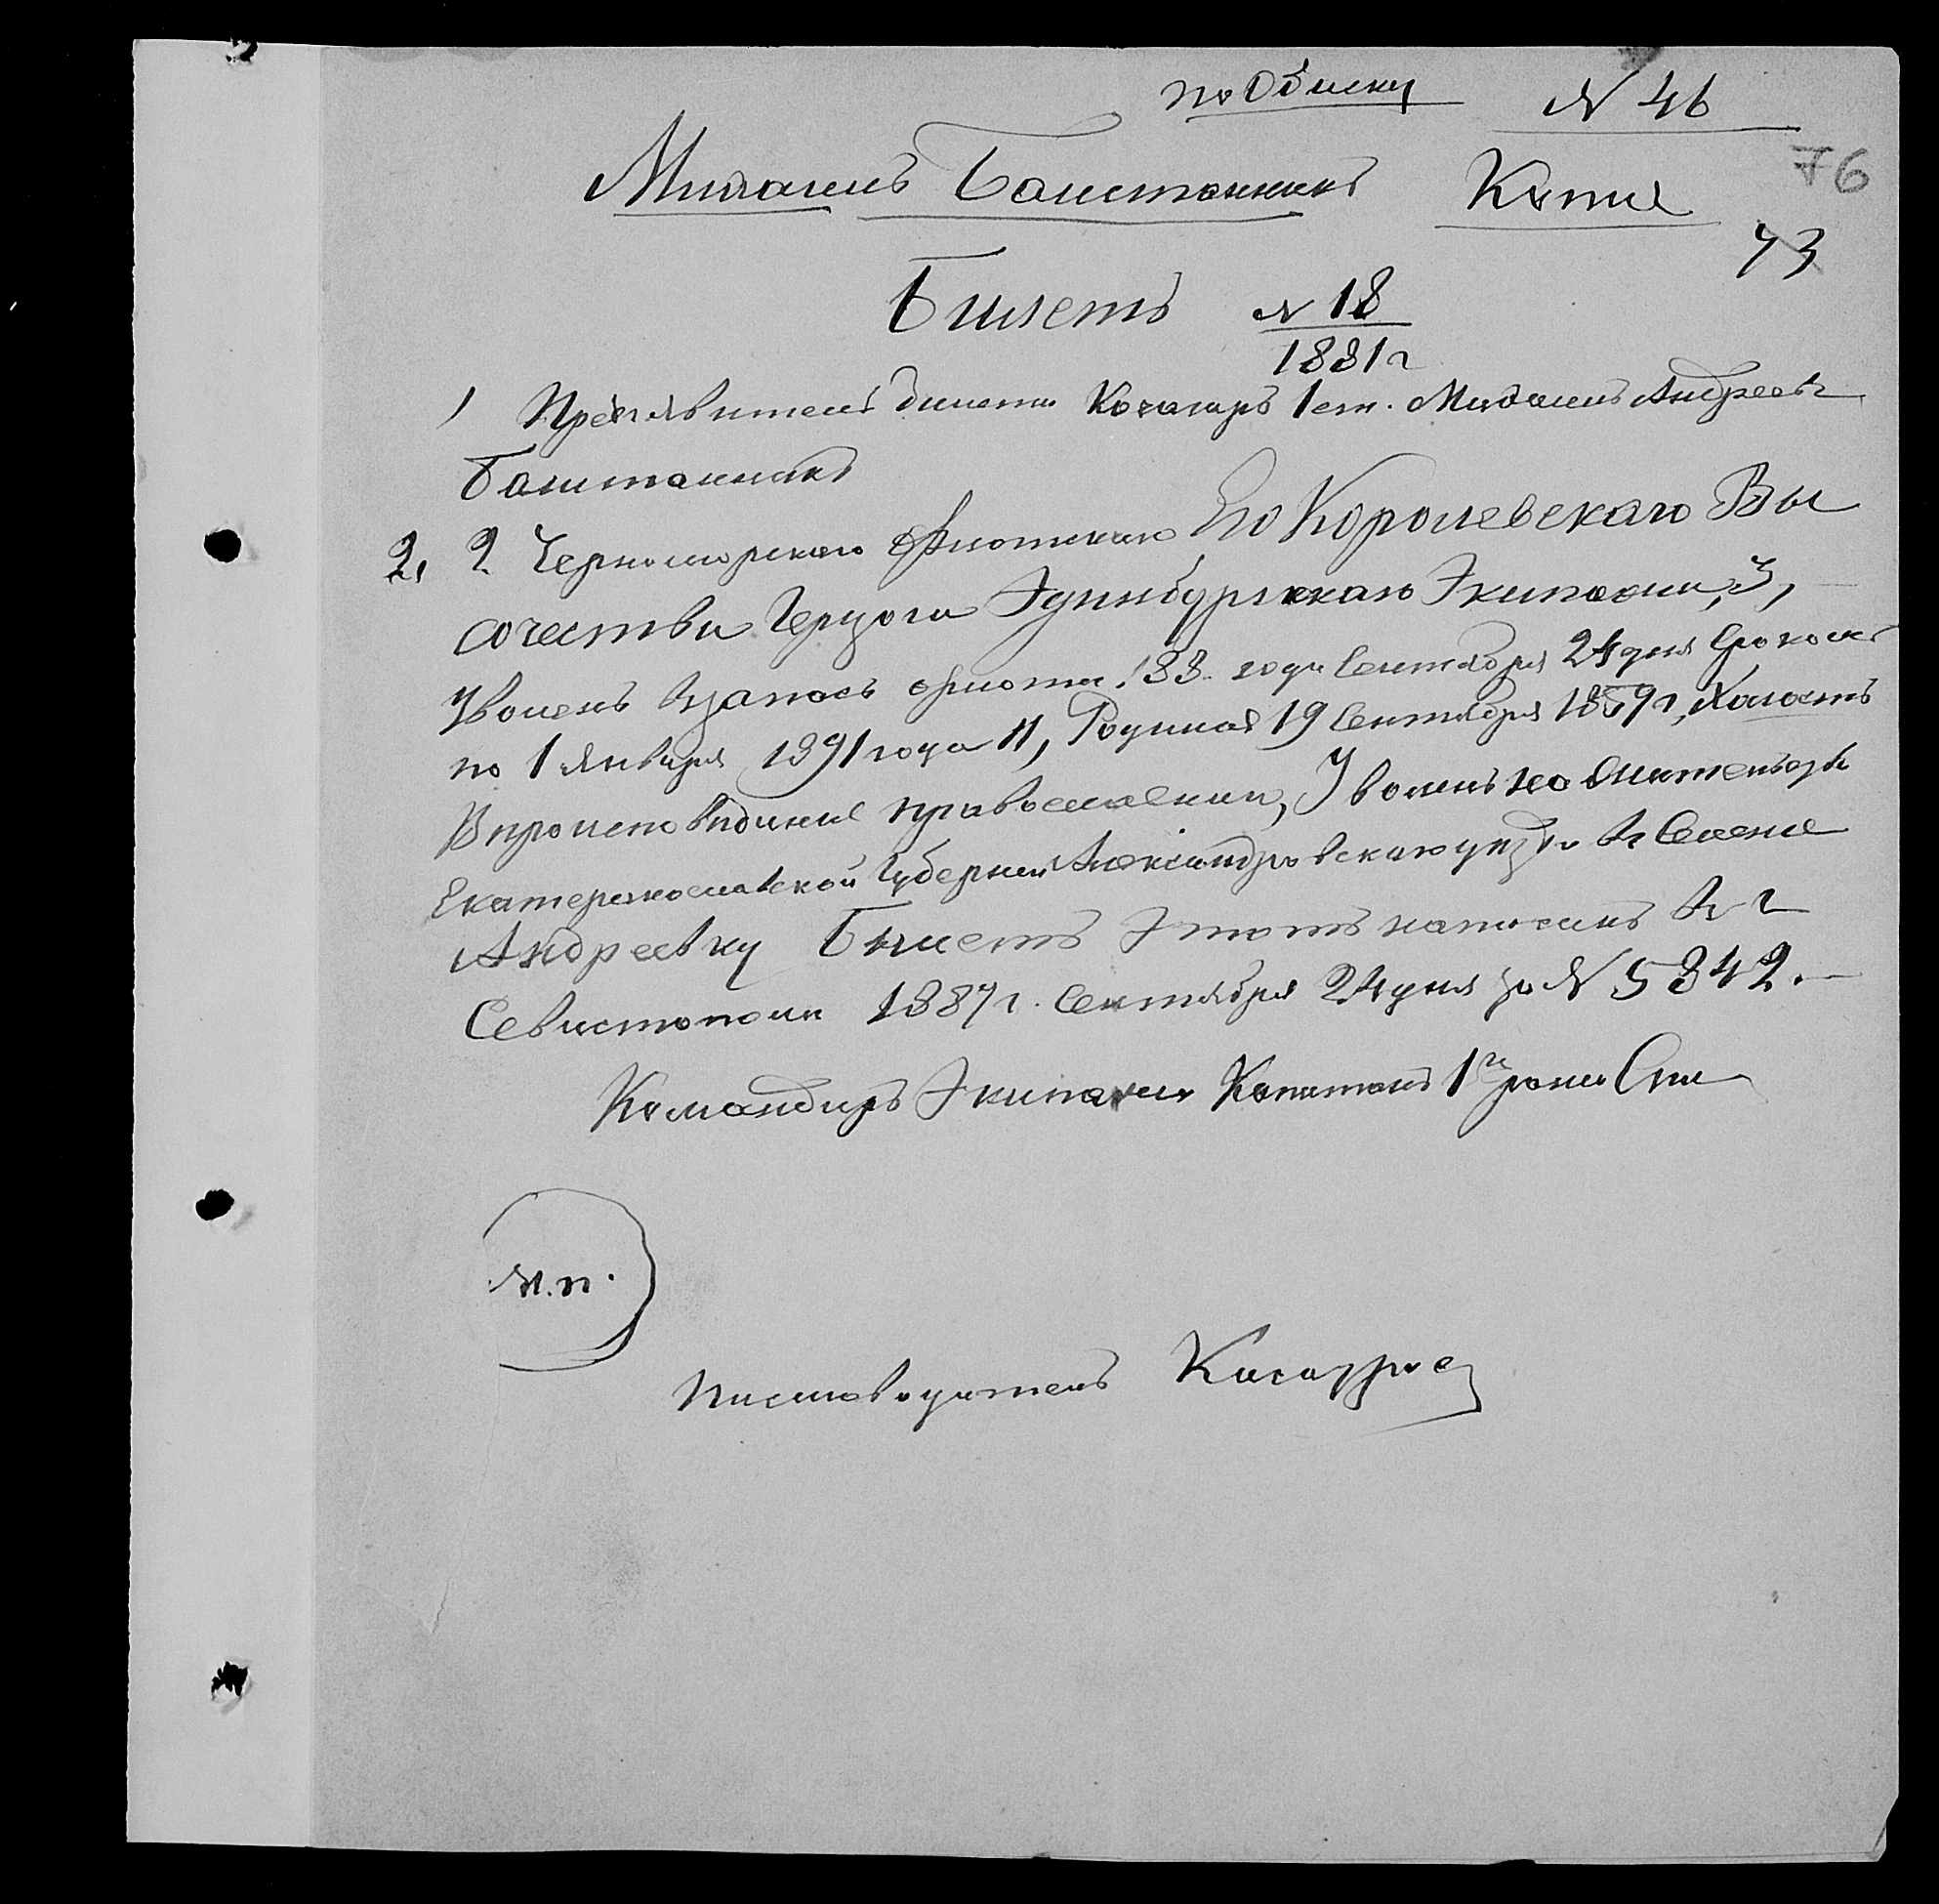 по Обыску № 46
76
Михаилъ Баштанникъ Копiя
73
Билетъ № 18
1881 г
1 Предъявитель билета Кочегаръ 1 ст. Михаилъ Андреевъ
Баштанникъ
2, 2 Черноморскаго флотскаго Его Королевскаго Вы
сочества Герцога Эдинбургскаго Экипажа, 3,
Уволенъ Взапасъ флота года Сентября 24 дня срокомъ
по 1 Января 1891 года 4, Родился 19 Сентября 1859 г, Холостъ
Вероисповѣданiя православнаго, Уволенъ на жительство
Екатеринославской Губернiи Александровскаго уѣзда въ Селенiе
Андреевку Билетъ Этотъ написанъ въ г
Севастополи 1887 г. Сентября 24 дня за № 5342.
Командиръ Экипажа Капитанъ 1го ранга
М.П.
Письмоводитель